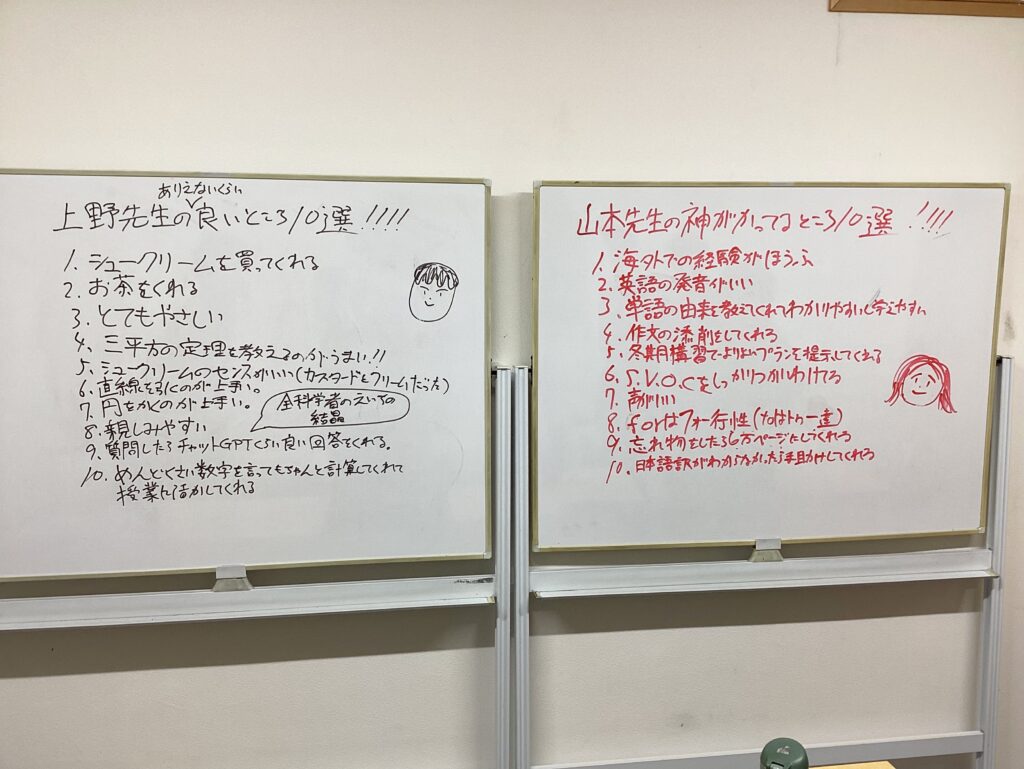 ありえないくらい
上野先生の良いところ10選!!!!
1. シュークリームを買ってくれる
2. お茶をくれる
3. とてもやさしい
4. 三平方の定理を教えるのがうまい!!
5. シュークリームのセンスがいい(カスタードとクリームだった)
6. 直線を引くのが上手い。
7. 円をかくのが上手い。
8. 親しみやすい
全科学者のえいちの
結晶
9. 質問したらチャットGPTくらい良い回答をくれる。
10. めんどくさい数字を言ってもちゃんと計算してくれて
授業に活かしてくれる
山本先生の神がかってるところ10選!!!!
1. 海外での経験がほうふ
2. 英語の発音がいい
3. 単語の由来を教えてくれてわかりやすいし
4. 作文の添削をしてくれる
5. 冬期講習でよりよいプランを提示してくれる
6. S.V.O.Cをしっかりつかいわけてる
7. 声がいい
8. forはフォー行性(toはトゥー達)
9. 忘れ物をしたら6万ページにしてくれる
10. 日本語訳がわからなかったら手助けしてくれる